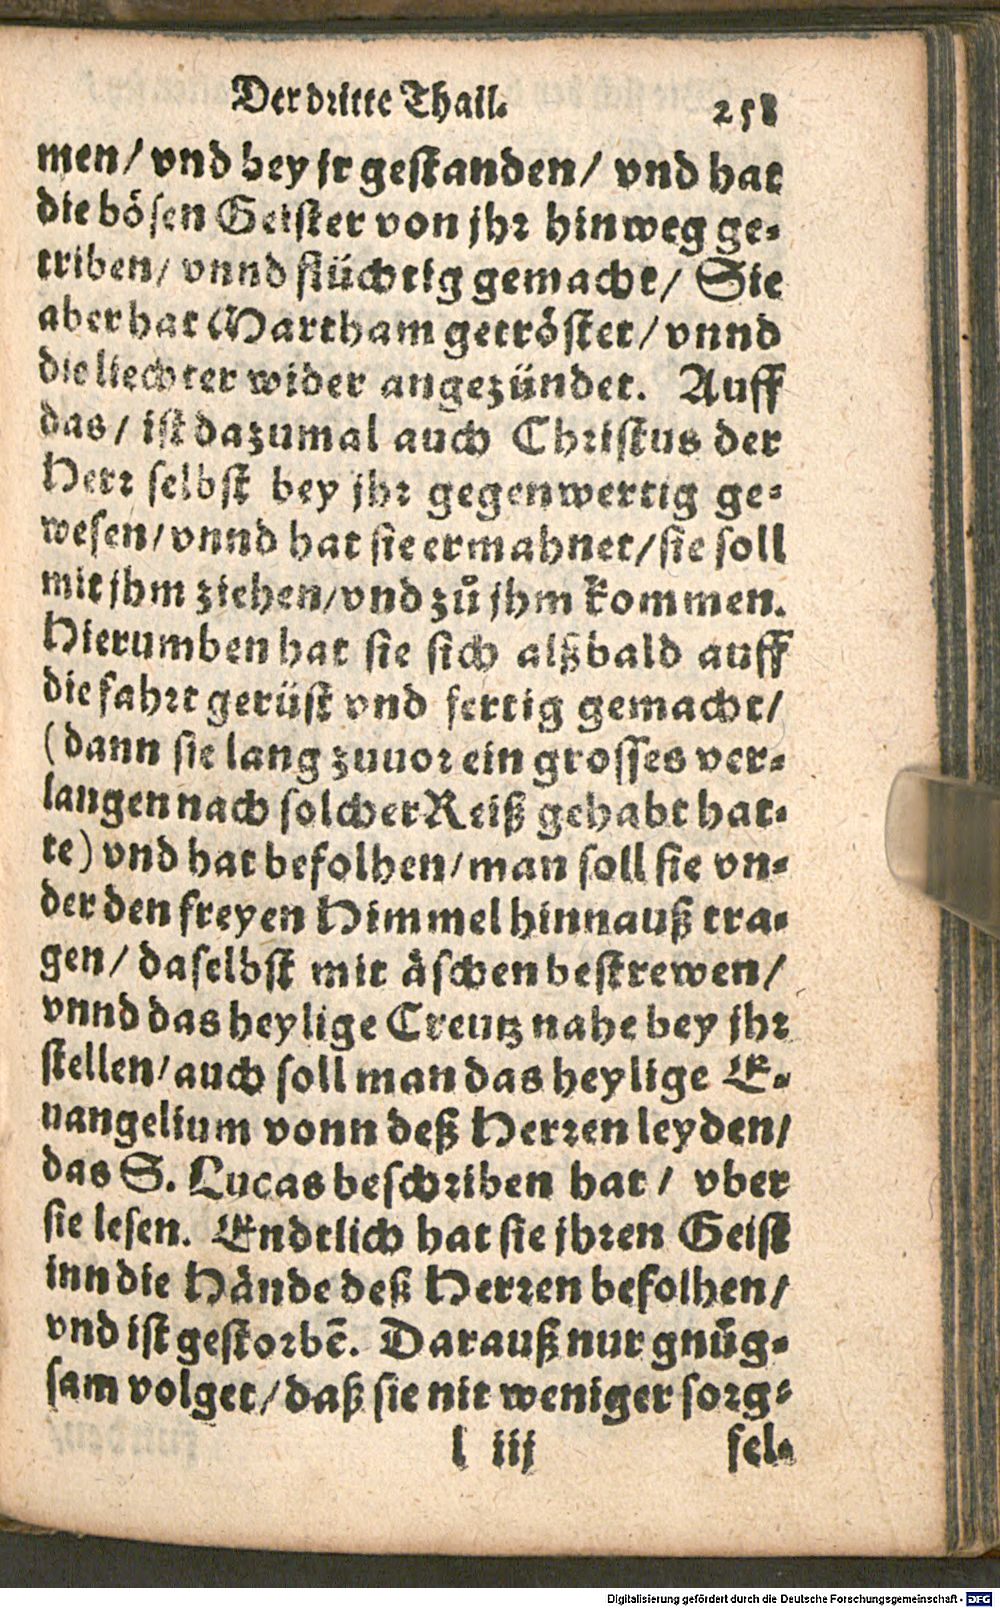 Der dritte Thail. 258
men/ vnd bey jr gestanden/ vnd hat
die bösen Geister von jhr hinweg ge-
triben/ vnnd flüchtig gemacht/ Sie
aber hat Martham getröstet/ vnnd
die liechter wider angezündet. Auff
das/ ist dazumal auch Christus der
Herr selbst bey jhr gegenwertig ge-
wesen/ vnnd hat sie ermahnet/ sie soll
mit jhm ziehen/ vnd zů jhm kommen.
Hierumben hat sie sich alßbald auff
die fahrt gerüst vnd fertig gemacht/
(dann sie lang zuuor ein grosses ver-
langen nach solcher Reiß gehabt hat-
te) vnd hat befolhen/ man soll sie vn-
der den freyen Himmel hinnauß tra-
gen/ daselbst mit äschen bestrewen/
vnnd das heylige Creutz nahe bey jhr
stellen/ auch soll man das heylige E-
uangelium vonn deß Herren leyden/
das S. Lucas beschriben hat/ vber
sie lesen. Endtlich hat sie jhren Geist
inn die Hände deß Herren befolhen/
vnd ist gestorbē. Darauß nur gnůg-
sam volget/ daß sie nit weniger sorg-
l iij fel-
Digitalisierung gefördert durch die Deutsche Forschungsgemeinschaft - DFG